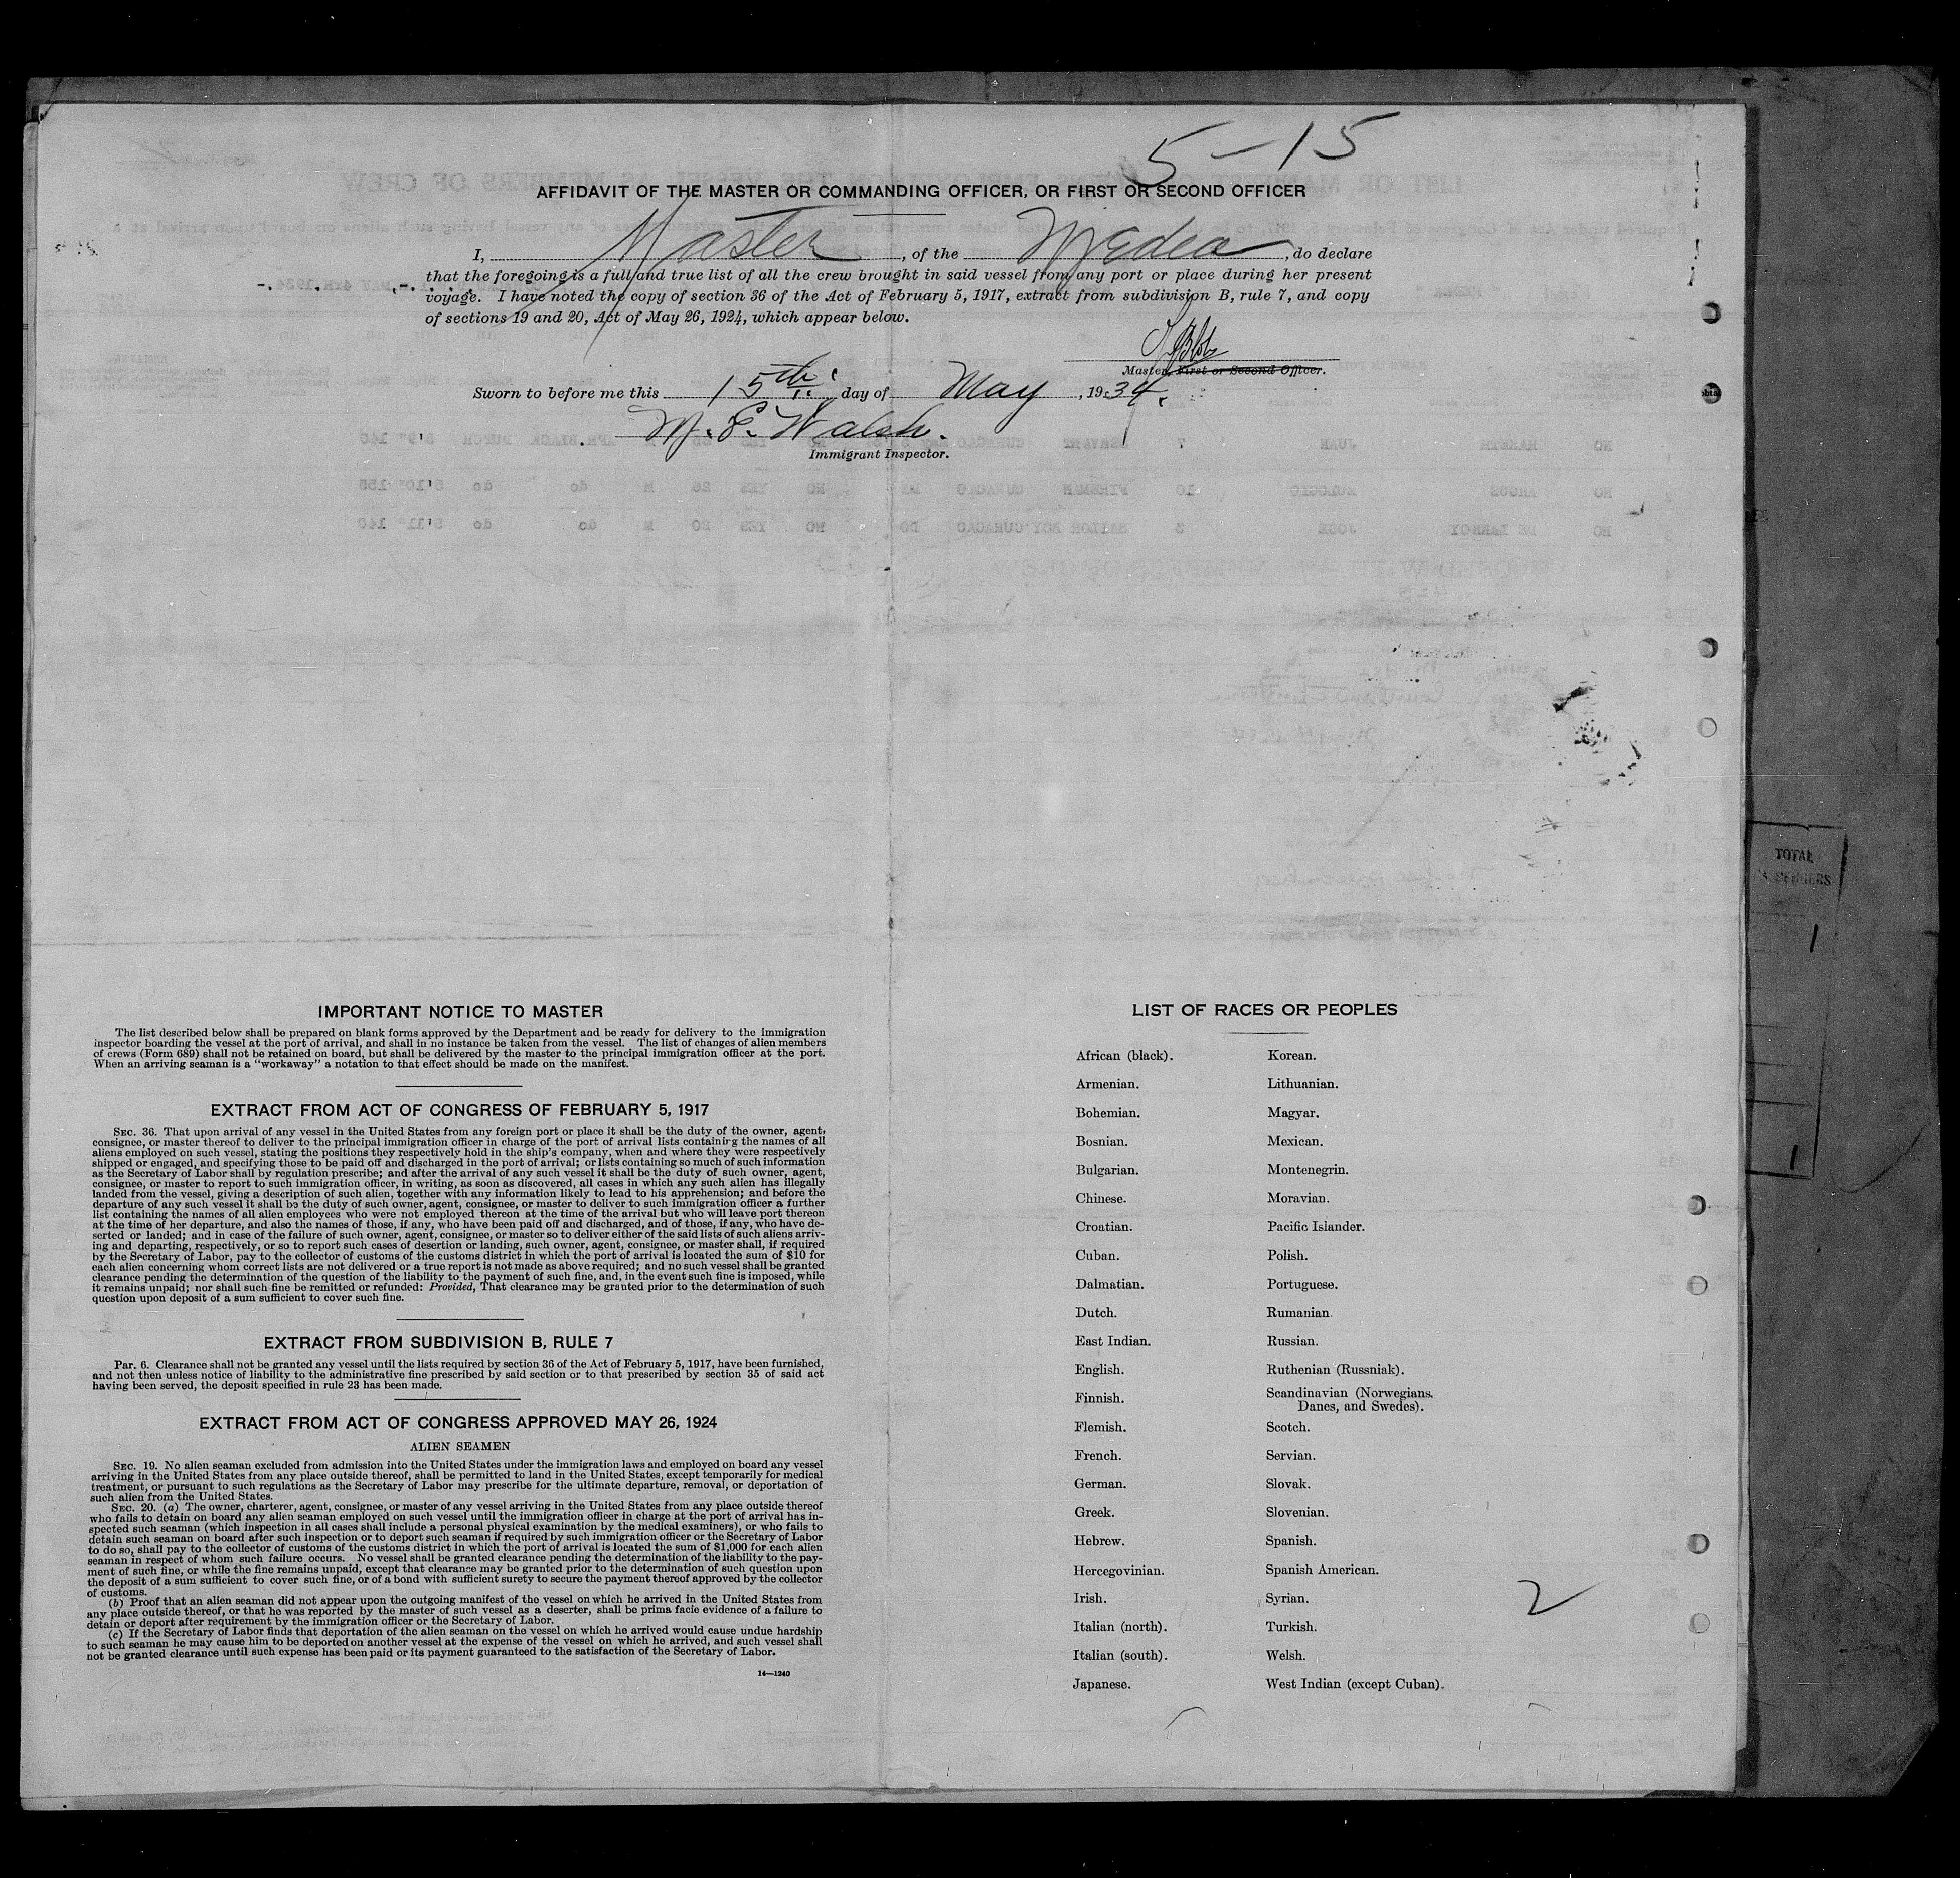 5-15
AFFIDAVIT OF THE MASTER OR COMMANDING OFFICER, OR FIRST OR SECOND OFFICER
I, Master, of the Medea, do declare
that the foregoing is a full and true list of all the crew brought in said vessel from any port or place during her present
voyage. I have noted the copy of section 36 of the Act of February 5, 1917, extract from subdivision B, rule 7, and copy
of sections 19 and 20, Act of May 26, 1924, which appear below.
Master, First or Second Officer.
Sworn to before me this 15th day of May, 1934.
M. E. Walsh.
Immigrant Inspector.
IMPORTANT NOTICE TO MASTER
The list described below shall be prepared on blank forms approved by the Department and be ready for delivery to the immigration
inspector boarding the vessel at the port of arrival, and shall in no instance be taken from the vessel. The list of changes of alien members
of crews (Form 689) shall not be retained on board, but shall be delivered by the master to the principal immigration officer at the port.
When an arriving seaman is a "workaway" a notation to that effect should be made on the manifest.
EXTRACT FROM ACT OF CONGRESS OF FEBRUARY 5, 1917
SEC. 36. That upon arrival of any vessel in the United States from any foreign port or place it shall be the duty of the owner, agent,
consignee, or master thereof to deliver to the principal immigration officer in charge of the port of arrival lists containing the names of all
aliens employed on such vessel, stating the positions they respectively hold in the ship's company, when and where they were respectively
shipped or engaged, and specifying those to be paid off and discharged in the port of arrival; or lists containing so much of such information
as the Secretary of Labor shall by regulation prescribe; and after the arrival of any such vessel it shall be the duty of such owner, agent,
consignee, or master to report to such immigration officer, in writing, as soon as discovered, all cases in which any such alien has illegally
landed from the vessel, giving a description of such alien, together with any information likely to lead to his apprehension; and before the
departure of any such vessel it shall be the duty of such owner, agent, consignee, or master to deliver to such immigration officer a further
list containing the names of all alien employees who were not employed thereon at the time of the arrival but who will leave port thereon
at the time of her departure, and also the names of those, if any, who have been paid off and discharged, and of those, if any, who have de-
serted or landed; and in case of the failure of such owner, agent, consignee, or master so to deliver either of the said lists of such aliens arriv-
ing and departing, respectively, or so to report such cases of desertion or landing, such owner, agent, consignee, or master shall, if required
by the Secretary of Labor, pay to the collector of customs of the customs district in which the port of arrival is located the sum of $10 for
each alien concerning whom correct lists are not delivered or a true report is not made as above required; and no such vessel shall be granted
clearance pending the determination of the question of the liability to the payment of such fine, and, in the event such fine is imposed, while
it remains unpaid; nor shall such fine be remitted or refunded: Provided, That clearance may be granted prior to the determination of such
question upon deposit of a sum sufficient to cover such fine.
EXTRACT FROM SUBDIVISION B, RULE 7
Par. 6. Clearance shall not be granted any vessel until the lists required by section 36 of the Act of February 5, 1917, have been furnished,
and not then unless notice of liability to the administrative fine prescribed by said section or to that prescribed by section 35 of said act
having been served, the deposit specified in rule 23 has been made.
EXTRACT FROM ACT OF CONGRESS APPROVED MAY 26, 1924
ALIEN SEAMEN
SEC. 19. No alien seaman excluded from admission into the United States under the immigration laws and employed on board any vessel
arriving in the United States from any place outside thereof, shall be permitted to land in the United States, except temporarily for medical
treatment, or pursuant to such regulations as the Secretary of Labor may prescribe for the ultimate departure, removal, or deportation of
such alien from the United States.
SEC. 20. (a) The owner, charterer, agent, consignee, or master of any vessel arriving in the United States from any place outside thereof
who fails to detain on board any alien seaman employed on such vessel until the immigration officer in charge at the port of arrival has in-
spected such seaman (which inspection in all cases shall include a personal physical examination by the medical examiners), or who fails to
detain such seaman on board after such inspection or to deport such seaman if required by such immigration officer or the Secretary of Labor
to do so, shall pay to the collector of customs of the customs district in which the port of arrival is located the sum of $1,000 for each alien
seaman in respect of whom such failure occurs. No vessel shall be granted clearance pending the determination of the liability to the pay-
ment of such fine, or while the fine remains unpaid, except that clearance may be granted prior to the determination of such question upon
the deposit of a sum sufficient to cover such fine, or of a bond with sufficient surety to secure the payment thereof approved by the collector
of customs.
(b) Proof that an alien seaman did not appear upon the outgoing manifest of the vessel on which he arrived in the United States from
any place outside thereof, or that he was reported by the master of such vessel as a deserter, shall be prima facie evidence of a failure to
detain or deport after requirement by the immigration officer or the Secretary of Labor.
(c) If the Secretary of Labor finds that deportation of the alien seaman on the vessel on which he arrived would cause undue hardship
to such seaman he may cause him to be deported on another vessel at the expense of the vessel on which he arrived, and such vessel shall
not be granted clearance until such expense has been paid or its payment guaranteed to the satisfaction of the Secretary of Labor.
14—1240
LIST OF RACES OR PEOPLES
African (black).
Armenian.
Bohemian.
Bosnian.
Bulgarian.
Chinese.
Croatian.
Cuban.
Dalmatian.
Dutch.
East Indian.
English.
Finnish.
Flemish.
French.
German.
Greek.
Hebrew.
Hercegovinian.
Irish.
Italian (north).
Italian (south).
Japanese.
Korean.
Lithuanian.
Magyar.
Mexican.
Montenegrin.
Moravian.
Pacific Islander.
Polish.
Portuguese.
Rumanian.
Russian.
Ruthenian (Russniak).
Scandinavian (Norwegians,
Danes, and Swedes).
Scotch.
Servian.
Slovak.
Slovenian.
Spanish.
Spanish American.
Syrian.
Turkish.
Welsh.
West Indian (except Cuban).
2
TOTAL